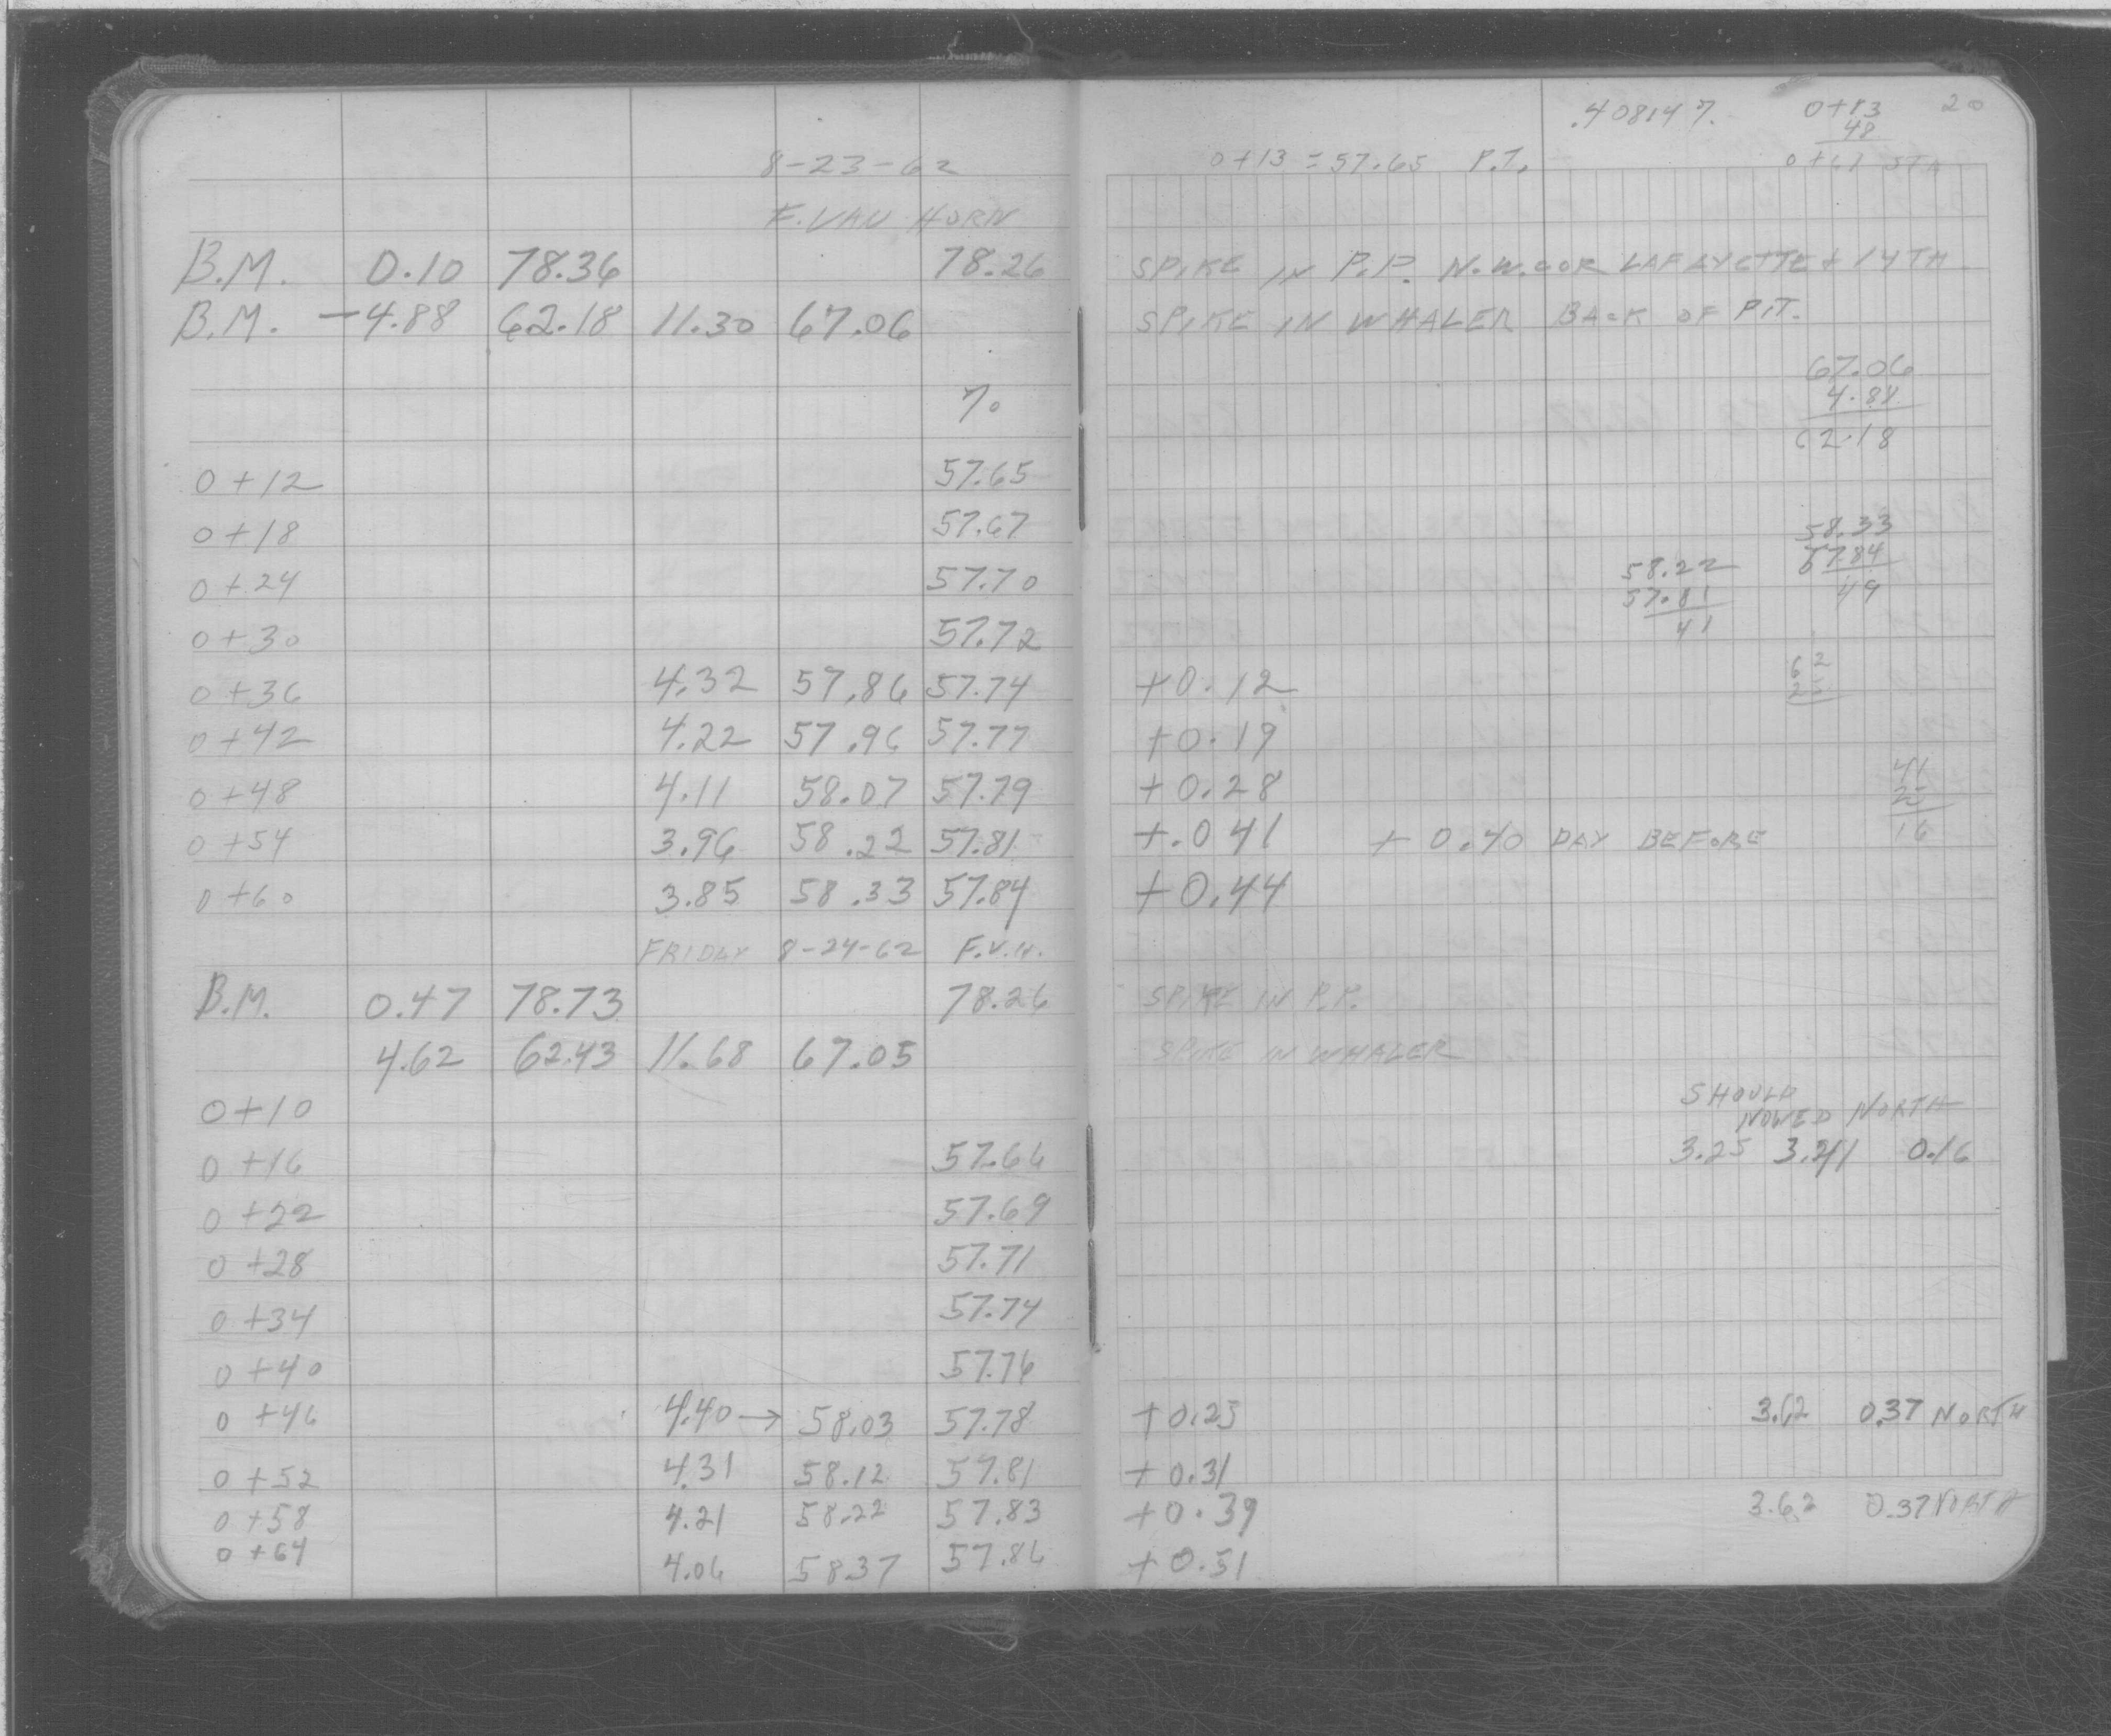 .408147. 0+83 20
48
8-23-62 0+13 = 57.65 P.T. 0+61 STA
F. VAN HORN
B.M. 0.10 78.36 78.26 SPIKE IN P.P. N.W. COR LAFAYETTE + 14TH
B.M. -4.88 62.18 11.30 67.06 SPIKE IN WHALER BACK OF PIT.
67.06
4.88
62.18
0+12 57.65
0+18 57.67 58.33
57.84
49
0+24 57.70 58.22
57.81
41
0+30 57.72
0+36 4.32 57.86 57.74 +0.12 62
0+42 4.22 57.96 57.77 +0.19
0+48 4.11 58.07 57.79 +0.28 41
25
16
0+54 3.96 58.22 57.81 +.041 + 0.40 DAY BEFORE
0+60 3.85 58.33 57.84 +0.44
FRIDAY 8-24-62 F.V.H.
B.M. 0.47 78.73 78.26 SPIKE IN P.P.
4.62 62.43 11.68 67.05 SPIKE IN WHALER
0+10 SHOULD
NORTH
0+16 57.66 3.25 0.16
0+22 57.69
0+28 57.71
0+34 57.74
0+40 57.76
0+46 4.40 → 58.03 57.78 +0.25 3.62 0.37 NORTH
0+52 4.31 58.12 57.81 +0.31
0+58 4.21 58.22 57.83 +0.39 3.62 0.37 NORTH
0+64 4.06 58.37 57.86 +0.51